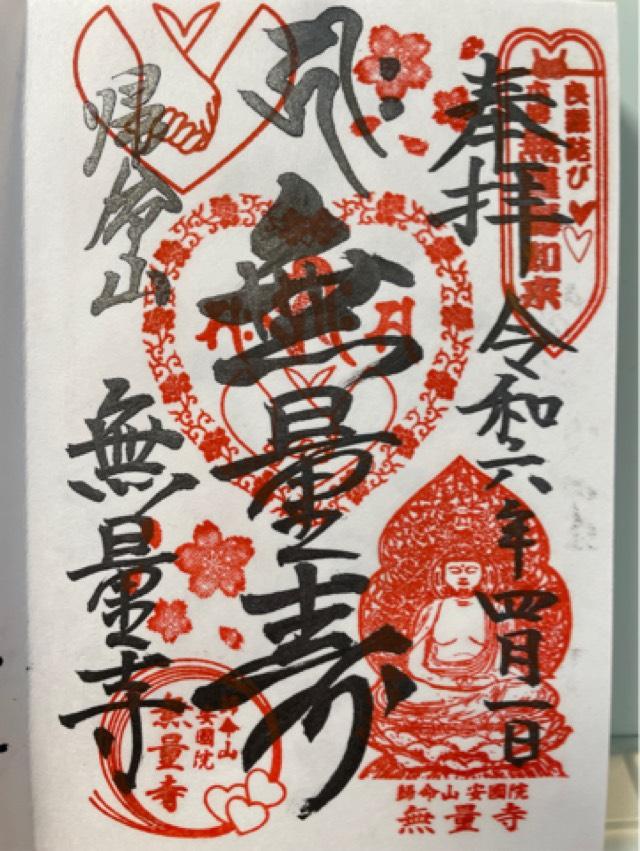 奉拝
令和六年四月一日
良縁結び
無量寿如来
無量寿
帰命山
無量寺
帰命山
安國院
無量寺
歸命山 安國院
無量寺